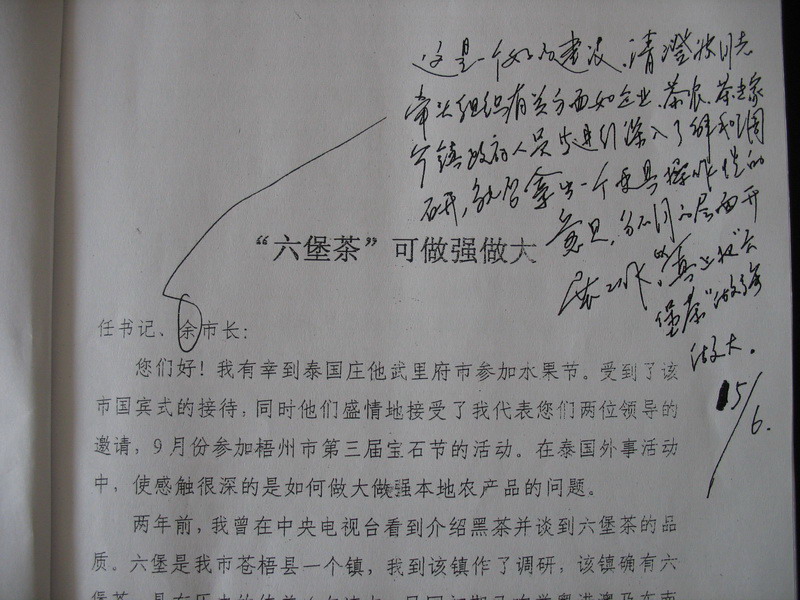 这是一个好的建议,请澄波同志
牵头组织有关方面如企业、茶农、茶专家
镇政府人员等进行深入了解和调
研,能否拿出一个更具操作性的
意见,分不同的层面开
展工作,真正把"六
堡茶"做强
做大。
15/6.
"六堡茶"可做强做大
任书记、余市长:
您们好!我有幸到泰国庄他武里府市参加水果节。受到了该
市国宾式的接待,同时他们盛情地接受了我代表您们两位领导的
邀请,9月份参加梧州市第三届宝石节的活动。在泰国外事活动
中,使感触很深的是如何做大做强本地农产品的问题。
两年前,我曾在中央电视台看到介绍黑茶并谈到六堡茶的品
质。六堡是我市苍梧县一个镇,我到该镇作了调研,该镇确有六